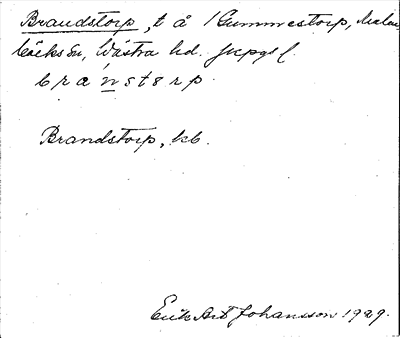 Brandstorp, t å /Gummestorp, Malm
bäck sn, Västra hd. Jkpgs l.
b r a n s t s r p.
Brandstorp, kb.
Erik Art Johansson 1929.